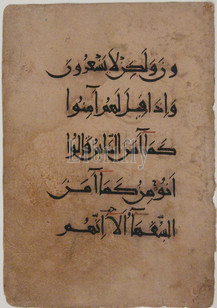 ون ولكن لا يشعرون
واذا قيل لهم آمنوا
كما آمن الناس قالوا
انؤمن كما آمن
السفهآء ألآ انهم